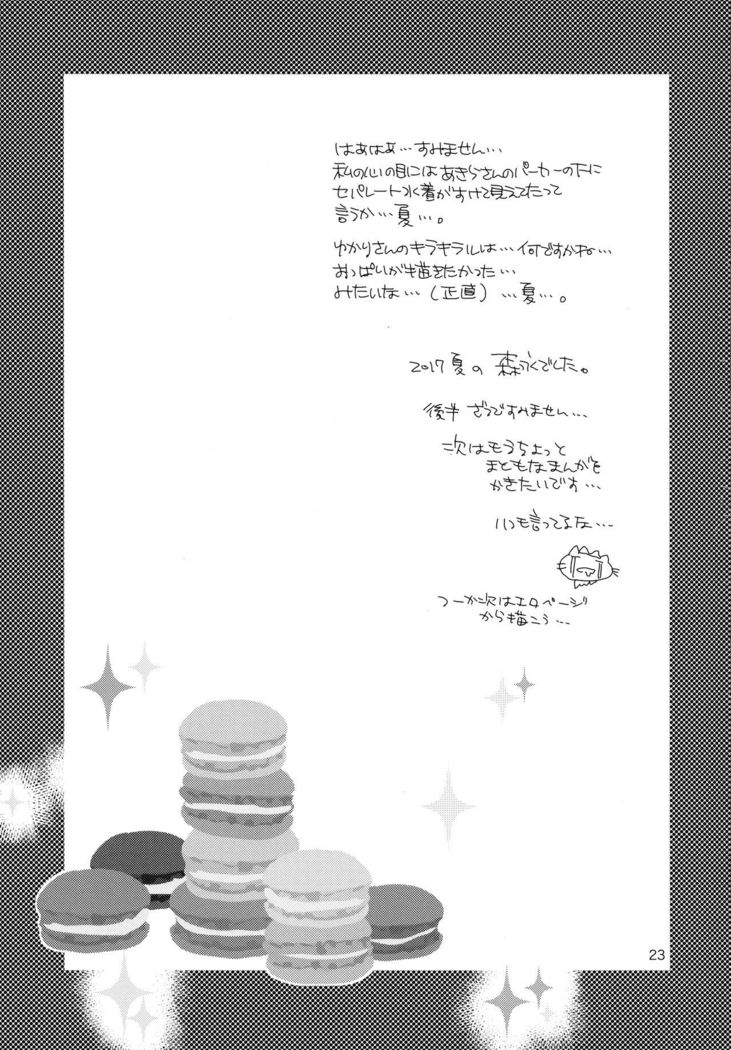 はあはぁ…すみません…
私の心の目にはあきらさんのパーカーの下に
セパレート水着がすけて見えてたって
言うか…夏…。
ゆかりさんのキラキラルは…何ですかね…
おっぱいが描きたかった…
みたいな…(正直)…夏…。
2017夏の 森永でした。
後半 ざつですみません…
次はもうちょっと
まともなまんがを
かきたいです…
いつも言ってるな…
つーか次はエロページ
から描こう…
23